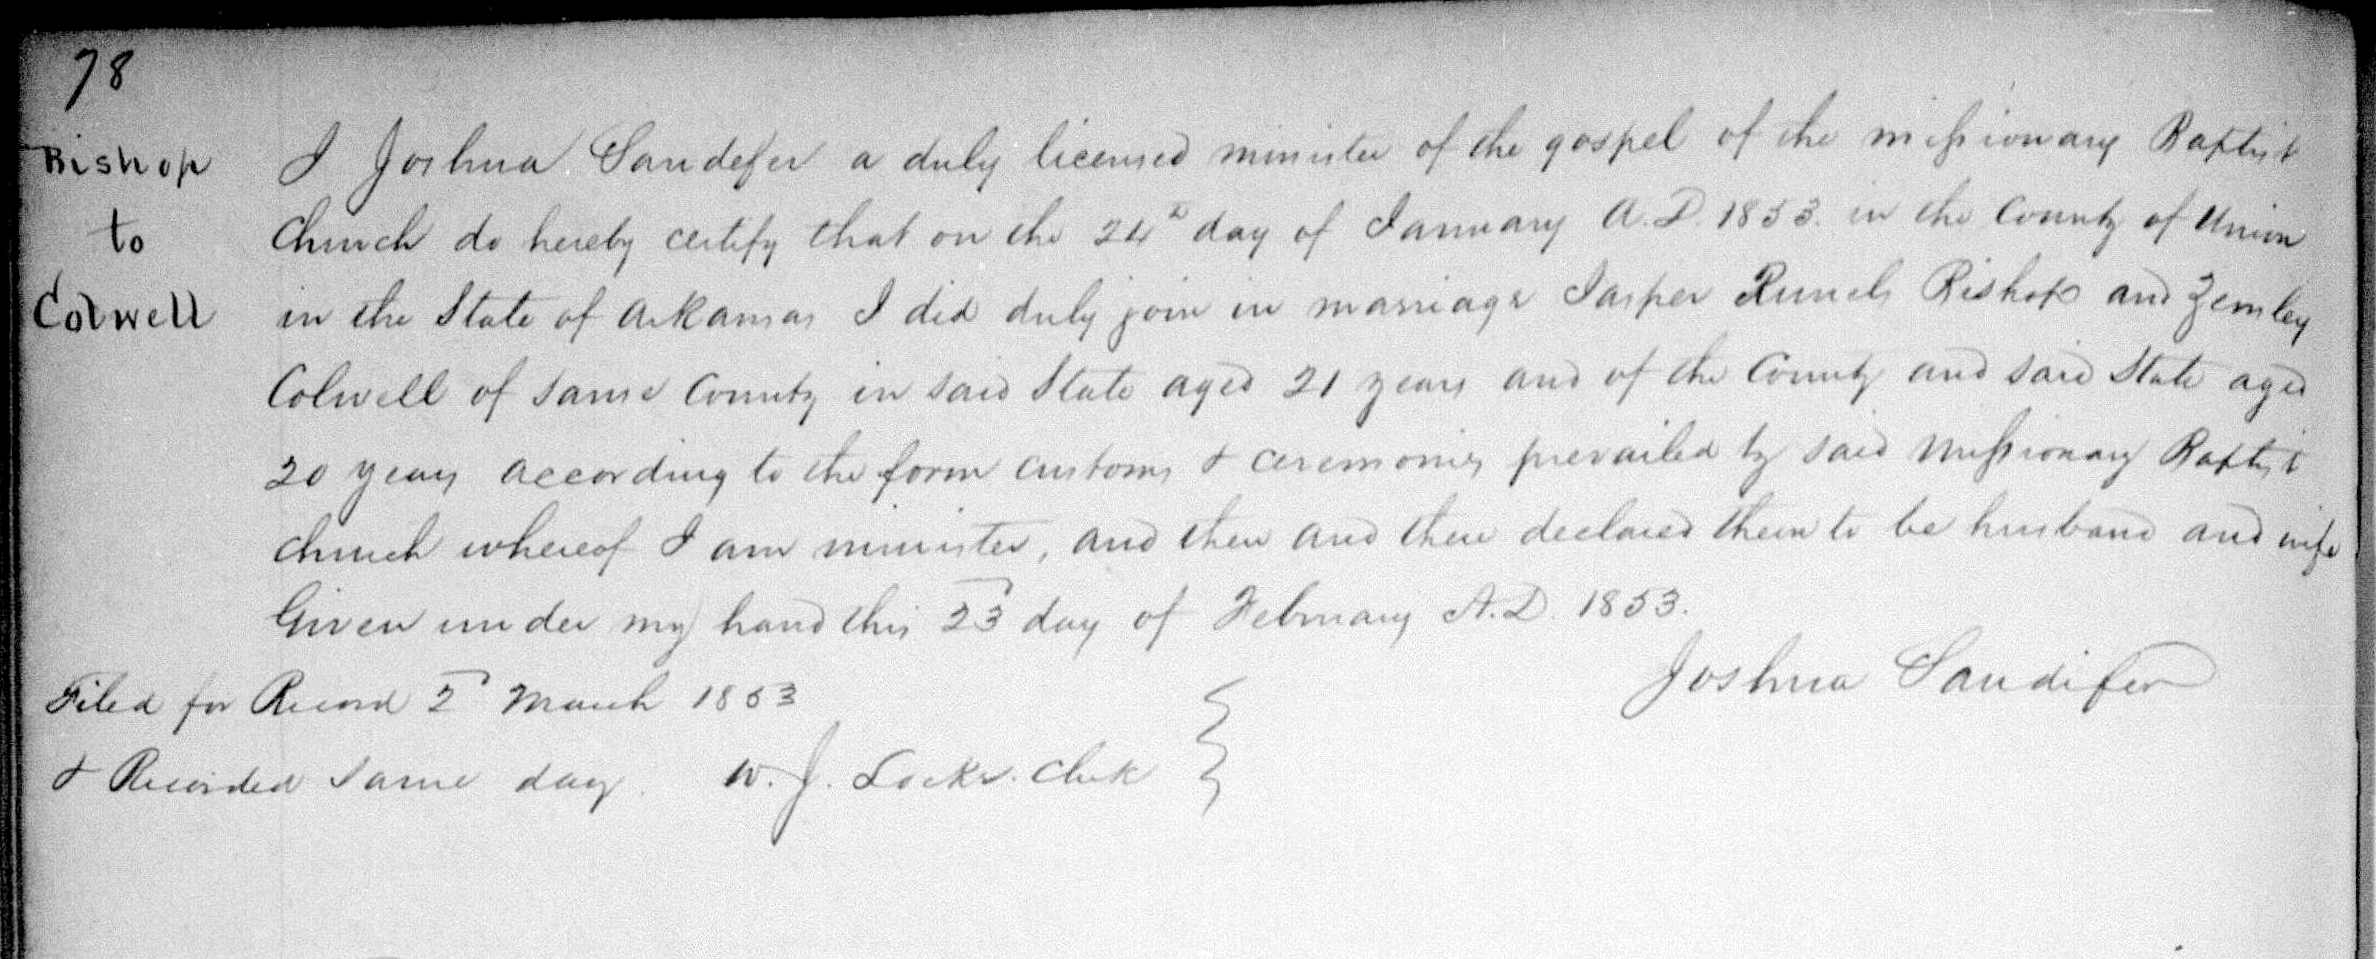 78
Bishop
to
Colwell
I Joshua Sandefer a duly licensed minister of the gospel of the missionary Baptist
Church do hereby certify that on the 24th day of January A.D. 1853. in the County of Union
in the State of Arkansas I did duly join in marriage Jasper Bishop and Zemley
Colwell of same County in said State aged 21 years and of the County and said State aged
20 years according to the form customs & ceremonies prevailed by said Missionary Baptist
church whereof I am minister, and then and there declared them to be husband and wife
Given under my hand this 23 day of February A.D. 1853.
Joshua Sandifer
Filed for Record 2 March 1853
& Recorded same day. W. J. Locke. Clerk